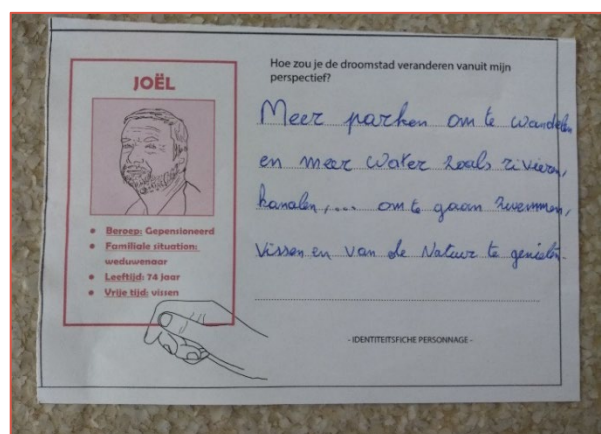 JOËL
Beroep: Gepensioneerd
Familiale situation:
weduwenaar
Leeftijd: 74 jaar
Vrije tijd: vissen
Hoe zou je de droomstad veranderen vanuit mijn
perspectief?
Meer parken om te wandelen
en meer Water zoals rivieren,
kanalen,... om te gaan zwemmen,
Vissen en van de Natuur te genieten.
- IDENTITEITSFICHE PERSONNAGE -